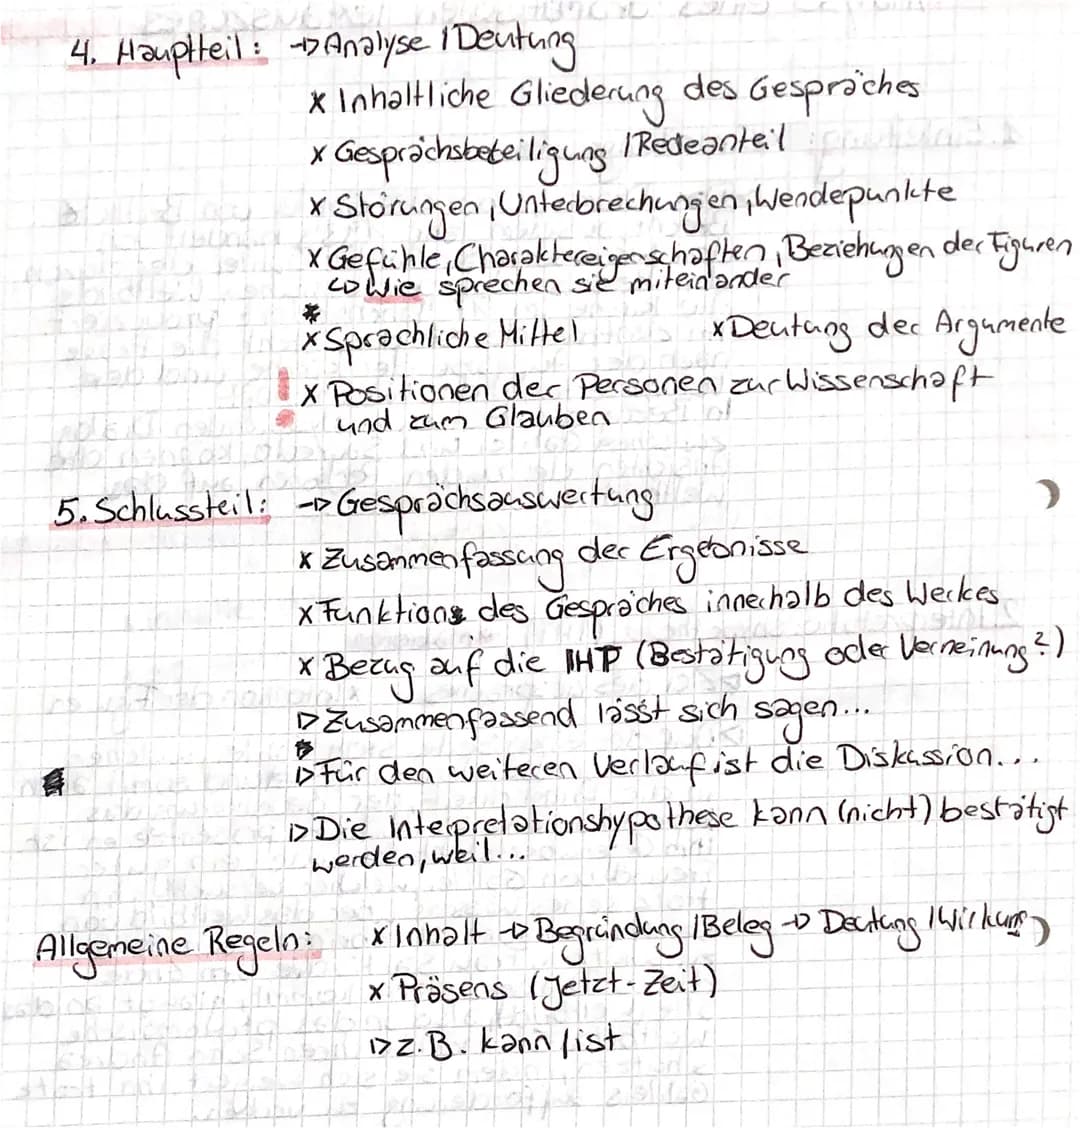 4. Hauptteil: → Analyse / Deutung
x Inhaltliche Gliederung des Gespräches
x Gesprächsbeteiligung / Redeanteil
x Störungen, Unterbrechungen, Wendepunkte
x Gefühle, Charaktereigenschaften, Beziehungen der Figuren
↳ Wie sprechen sie miteinander
x Sprachliche Mittel x Deutung der Argumente
! x Positionen der Personen zur Wissenschaft
und zum Glauben
5. Schlussteil: → Gesprächsauswertung
x Zusammenfassung der Ergebnisse
x Funktion des Gespräches innerhalb des Werkes
x Bezug auf die IHP (Bestätigung oder Verneinung?)
▷ Zusammenfassend lässt sich sagen...
▷ Für den weiteren Verlauf ist die Diskussion...
▷ Die Interpretationshypothese kann (nicht) bestätigt
werden, weil...
Allgemeine Regeln: x Inhalt → Begründung / Beleg → Deutung / Wirkung
x Präsens (Jetzt-Zeit)
▷ z.B. kann / ist